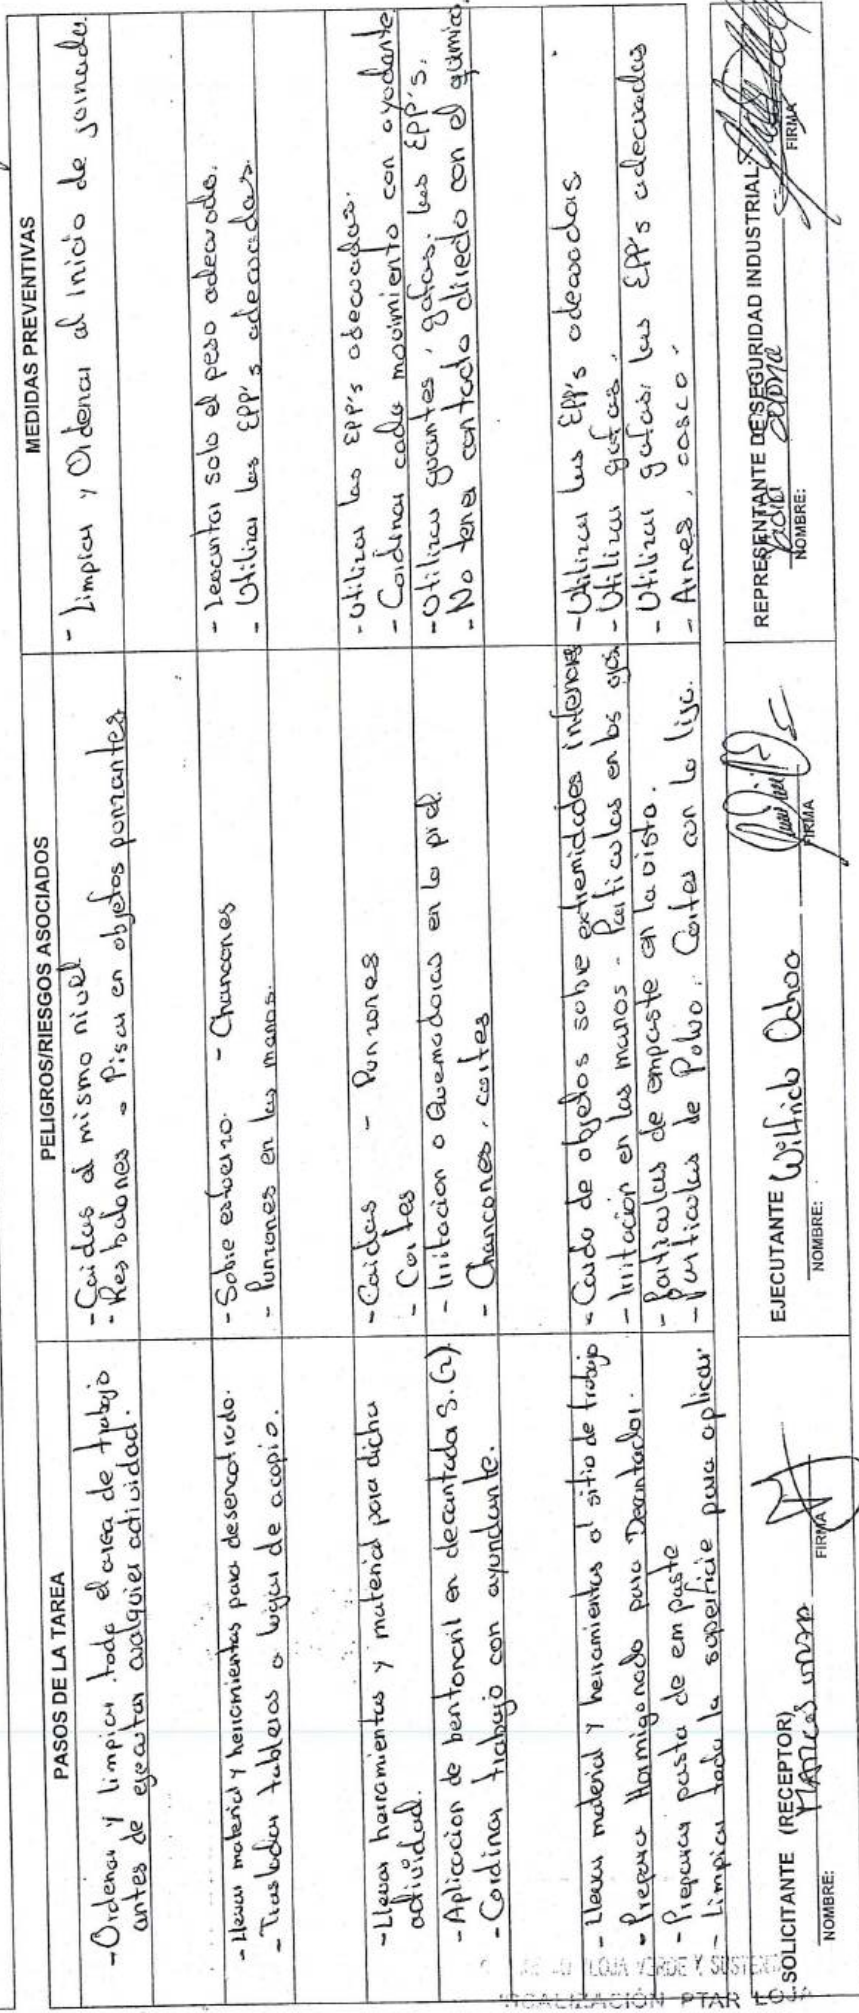 PASOS DE LA TAREA
PELIGROS/RIESGOS ASOCIADOS
MEDIDAS PREVENTIVAS
- Ordenar y limpiar toda el area de trabajo
antes de ejecutar cualquier actividad.
- Caidas al mismo nivel
- Resbalones - Pisar en objetos punzantes
- Limpiar y Ordenar al inicio de jornada.
- Llevar material y herramientas para desencofrado.
- Trasladar tableros a lugar de acopio.
- Sobre esfuerzo. - Chancones
- Punzones en las manos.
- Levantar solo el peso adecuado.
- Utilizar los EPP's adecuados.
- Llevar herramientas y material para dicha
actividad.
- Caidas - Punzones
- Cortes
- Utilizar los EPP's adecuados.
- Cordinar cada movimiento con ayudante
- Aplicacion de bentoncril en decantada S.(2).
- Cordinar trabajo con ayundante.
- Irritacion o Quemadoras en la piel.
- Chancones, cortes
- Utilizar guantes, gafas, los EPP's.
- No tener contacto directo con el quimico.
- Llevar material y herramientas al sitio de trabajo
- Preparar Hormigonado para Decantador.
- Preparar pasta de empaste
- Limpiar toda la superficie para aplicar
- Caido de objetos sobre extremidades inferiores
- Irritacion en las manos - Particulas en los ojos
- Particulas de empaste en la vista.
- Particulas de Polvo. Cortes con la lija.
- Utilizar los EPP's adecuados
- Utilizar gafas.
- Utilizar gafas, los EPP's adecuados
- Arnes, casco.
SOLICITANTE (RECEPTOR)
NOMBRE:
FIRMA
EJECUTANTE Wilfrido Ochoa
NOMBRE:
FIRMA
REPRESENTANTE DE SEGURIDAD INDUSTRIAL:
NOMBRE:
FIRMA
LOJA VERDE Y
PTAR LOJA